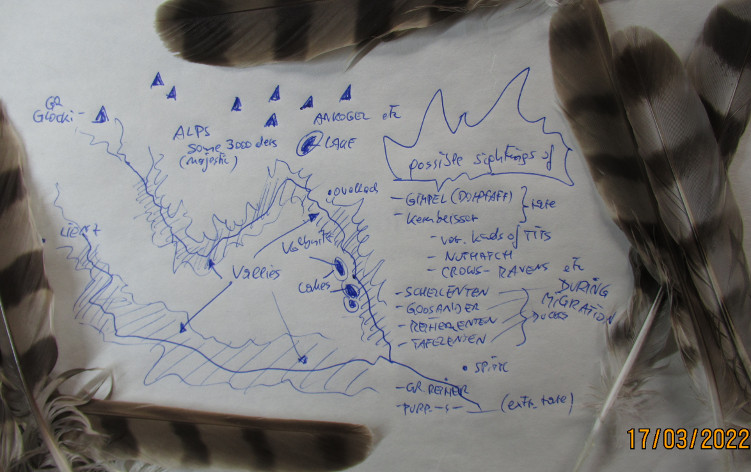 GR.
GLOCKI-
ALPS
Some 3000 ders
(majestic)
ANKOGEL etc
LAKE
• Ovellach
LIENZ
Vallies
Lakes
possible sightings of
- GIMPEL (DOMPFAFF)
- Kernbeisser
rare
- var. kinds of TITS
- NUTHATCH
- CROWS - RAVENS etc
- SCHELLENTEN
- GOOSANDER
- REIHERENTEN
- TAFELENTEN
DUCKS
DURING
MIGRATION
• SPITTL
- GR. REIHER
- PURP. -"- (extr. rare)
17/03/2022